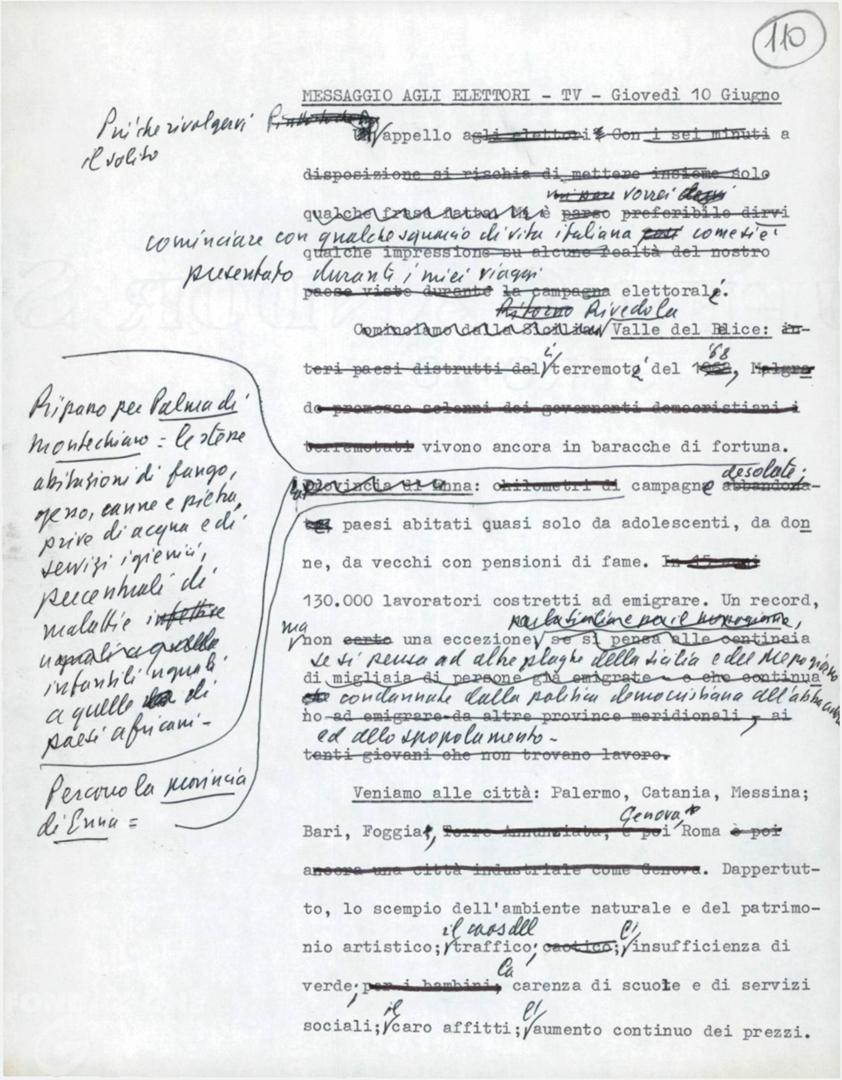 110
MESSAGGIO AGLI ELETTORI - TV - Giovedì 10 Giugno
Più che rivolgervi
il solito
appello agli elettori. Con i sei minuti a
disposizione si rischia di mettere insieme solo
mi pare vorrei
qualche frase fatta. Mi è parso preferibile dirvi
cominciare con qualche squarcio di vita italiana come si è
qualche impressione su alcune realtà del nostro
presentato durante i miei viaggi
paese viste durante la campagna elettorale.
Ritorno Rivedo la
Cominciamo dalla Sicilia. Valle del Belice: in-
teri paesi distrutti dal terremoto del 1968, Malgra
'68
do promesse solenni dei governanti democristiani i
terremotati vivono ancora in baracche di fortuna.
desolate;
Provincia di Enna: chilometri di campagne abbandona-
te, paesi abitati quasi solo da adolescenti, da don
ne, da vecchi con pensioni di fame. In 15 anni
130.000 lavoratori costretti ad emigrare. Un record,
ma
non certo una eccezione se si pensa alle centinaia
se si pensa ad altre plaghe della Sicilia e del Mezzogiorno
di migliaia di persone già emigrate e che continua
condannate dalla politica democristiana all'abbandono
no ad emigrare da altre province meridionali, ai
ed allo spopolamento.
tenti giovani che non trovano lavoro.
Ripasso per Palma di
Montechiaro = le stesse
abitazioni di fango,
gesso, canne e pietra,
prive di acqua e di
servizi igienici,
percentuali di
malattie infettive
uguali a quelle
infantili uguali
a quelle di
paesi africani -
Percorro la provincia
di Enna =
Veniamo alle città: Palermo, Catania, Messina;
Genova,
Bari, Foggia, Torre Annunziata, e poi Roma e poi
ancora una città industriale come Genova. Dappertut-
to, lo scempio dell'ambiente naturale e del patrimo-
il caos del
nio artistico; traffico; caotico; l'insufficienza di
la
verde; per i bambini; carenza di scuole e di servizi
il
l'
sociali; caro affitti; aumento continuo dei prezzi.